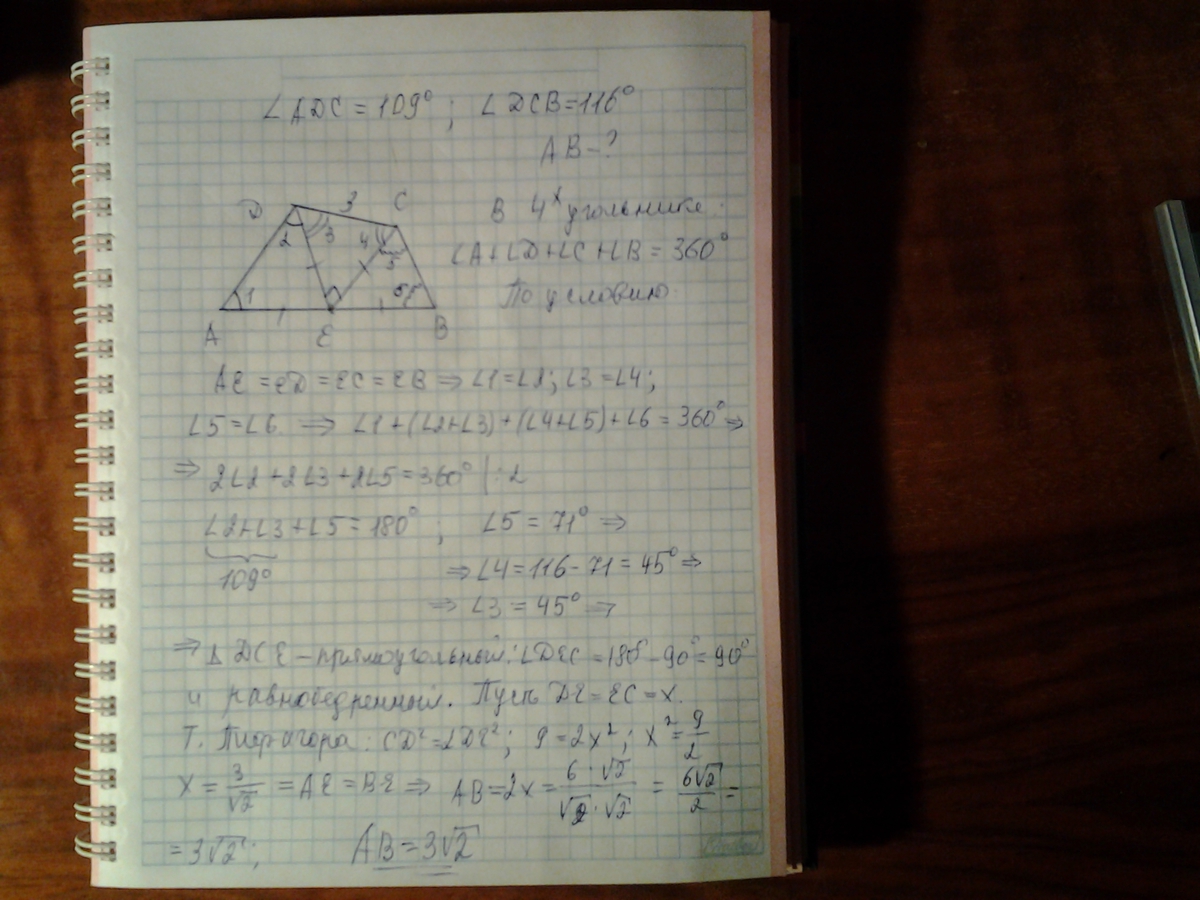 ∠ADC = 109°; ∠DCB = 116°
AB - ?
D 3 C
2 3 4 5
1 6
A E B
В 4ˣугольнике:
∠A+∠D+∠C+∠B = 360°
По условию:
AE = ED = EC = EB ⇒ ∠1=∠2; ∠3=∠4;
∠5=∠6. ⇒ ∠1+(∠2+∠3)+(∠4+∠5)+∠6 = 360° ⇒
⇒ 2∠2+2∠3+2∠5=360° | :2
∠2+∠3+∠5=180°; ∠5 = 71° ⇒
109° ⇒ ∠4 = 116-71 = 45° ⇒
⇒ ∠3 = 45° ⇒
⇒ Δ DCE – прямоугольный: ∠DEC = 180°-90°=90°
и равнобедренный. Пусть DE = EC = x.
Т. Пифагора: CD²=2DE²; 9=2x²; x²=9/2
x = 3/√2 = AE = BE ⇒ AB=2x= 6·√2/√2·√2 = 6√2/2 =
= 3√2; AB=3√2